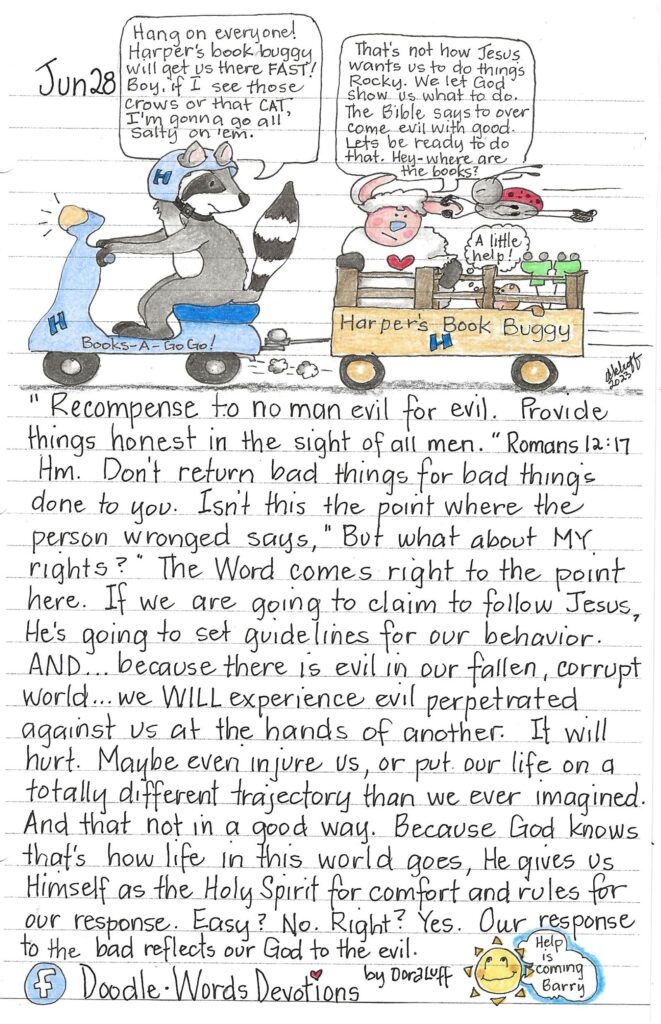 Jun 28
Hang on everyone!
Harper's book buggy
will get us there FAST!
Boy, if I see those
crows or that CAT
I'm gonna go all
salty on 'em.
That's not how Jesus
wants us to do things
Rocky. We let God
show us what to do.
The Bible says to over
come evil with good.
Lets be ready to do
that. Hey-where are
the books?
A little
help!
H
H
Books-A-GoGo!
Harper's Book Buggy
H
2023
"Recompense to no man evil for evil. Provide
things honest in the sight of all men." Romans 12:17
Hm. Don't return bad things for bad things
done to you. Isn't this the point where the
person wronged says, "But what about MY
rights?" The Word comes right to the point
here. If we are going to claim to follow Jesus,
He's going to set guidelines for our behavior.
AND... because there is evil in our fallen, corrupt
world... we WILL experience evil perpetrated
against us at the hands of another. It will
hurt. Maybe even injure us, or put our life on a
totally different trajectory than we ever imagined.
And that not in a good way. Because God knows
that's how life in this world goes, He gives us
Himself as the Holy Spirit for comfort and rules for
our response. Easy? No. Right? Yes. Our response
to the bad reflects our God to the evil.
f Doodle-Words Devotions by Dora Luff
Help
is
coming
Barry